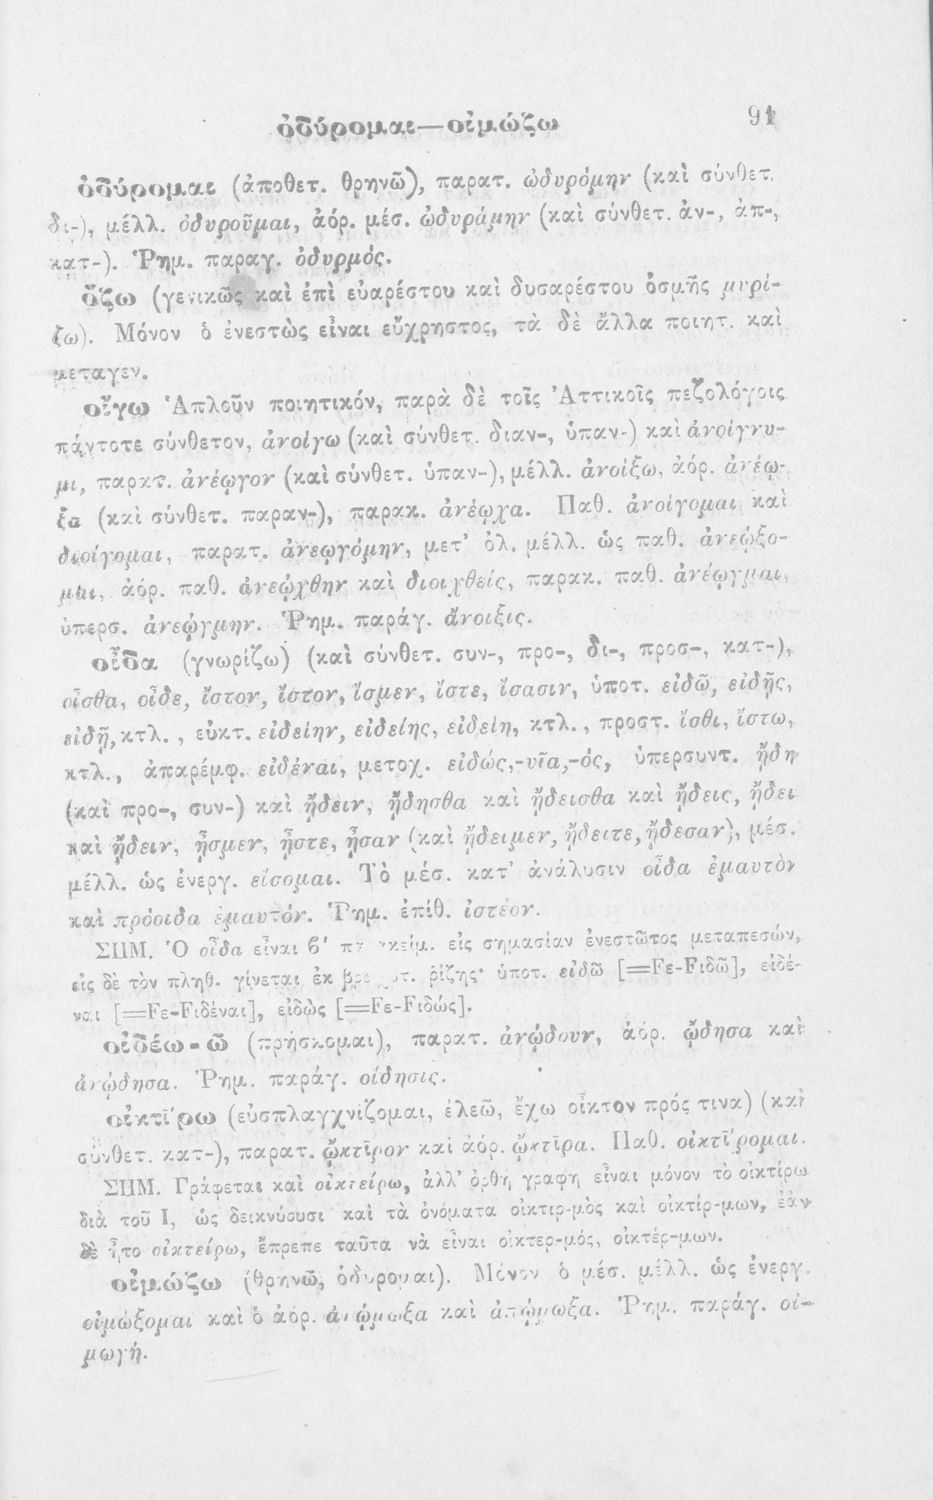 ὀδύρομαι—οἰμώζω 91
ὀδύρομαι (ἀποθετ. θρηνῶ), παρατ. ὠδυρόμην (καὶ σύνθετ.
δι-), μέλλ. ὀδυροῦμαι, ἀόρ. μέσ. ὠδυράμην (καὶ σύνθετ. ἀν-, ἀπ-,
κατ-). Ῥημ. παραγ. ὀδυρμός.
ὄζω (γενικῶς καὶ ἐπὶ εὐαρέστου καὶ δυσαρέστου ὀσμῆς μυρί-
ζω). Μόνον ὁ ἐνεστὼς εἶναι εὔχρηστος, τὰ δὲ ἄλλα ποιητ. καὶ
μεταγεν.
οἴγω Ἁπλοῦν ποιητικόν, παρὰ δὲ τοῖς Ἀττικοῖς πεζολόγοις
πάντοτε σύνθετον, ἀνοίγω (καὶ σύνθετ. διαν-, ὑπαν-) καὶ ἀνοίγνυ-
μι, παρατ. ἀνέῳγον (καὶ σύνθετ. ὑπαν-), μέλλ. ἀνοίξω, ἀόρ. ἀνέῳ-
ξα (καὶ σύνθετ. παραν-), παρακ. ἀνέῳχα. Παθ. ἀνοίγομαι καὶ
διοίγομαι, παρατ. ἀνεῳγόμην, μετ' ὀλ. μέλλ. ὡς παθ. ἀνεῴξο-
μαι, ἀόρ. παθ. ἀνεῴχθην καὶ διοιχθείς, παρακ. παθ. ἀνέῳγμαι,
ὑπερσ. ἀνεῴγμην. Ῥημ. παράγ. ἄνοιξις.
οἶδα (γνωρίζω) (καὶ σύνθετ. συν-, προ-, δι-, προσ-, κατ-),
οἶσθα, οἶδε, ἴστον, ἴστον, ἴσμεν, ἴστε, ἴσασιν, ὑποτ. εἰδῶ, εἰδῇς,
εἰδῇ, κτλ., εὐκτ. εἰδείην, εἰδείης, εἰδείη, κτλ., προστ. ἴσθι, ἴστω,
κτλ., ἀπαρέμφ. εἰδέναι, μετοχ. εἰδώς,-υῖα,-ός, ὑπερσυντ. ᾔδη
(καὶ προ-, συν-) καὶ ᾔδειν, ᾔδησθα καὶ ᾔδεισθα καὶ ᾔδεις, ᾔδει
καὶ ᾔδειν, ᾖσμεν, ᾖστε, ᾖσαν (καὶ ᾔδειμεν, ᾔδειτε, ᾔδεσαν), μέσ.
μέλλ. ὡς ἐνεργ. εἴσομαι. Τὸ μέσ. κατ' ἀνάλυσιν οἶδα ἐμαυτὸν
καὶ πρόοιδα ἐμαυτόν. Ῥημ. ἐπίθ. ἰστέον.
ΣΗΜ. Ὁ οἶδα εἶναι β' εἰς σημασίαν ἐνεστῶτος μεταπεσών,
εἰς δὲ τὸν πληθ. γίνεται ἐκ ῥίζης· ὑποτ. εἰδῶ [=Fε-Fιδῶ], εἰδέ-
ναι [=Fε-Fιδέναι], εἰδὼς [=Fε-Fιδώς].
οἰδέω-ῶ (πρήσκομαι), παρατ. ἀνῴδουν, ἀόρ. ᾤδησα καὶ
ἀνῴδησα. Ῥημ. παράγ. οἴδησις.
οἰκτίρω (εὐσπλαγχνίζομαι, ἐλεῶ, ἔχω οἶκτον πρός τινα) (καὶ
σύνθετ. κατ-), παρατ. ᾤκτῑρον καὶ ἀόρ. ᾤκτῑρα. Παθ. οἰκτίρομαι.
ΣΗΜ. Γράφεται καὶ οἰκτείρω, ἀλλ' ὀρθὴ γραφὴ εἶναι μόνον τὸ οἰκτίρω
διὰ τοῦ Ι, ὡς δεικνύουσι καὶ τὰ ὀνόματα οἰκτιρ-μὸς καὶ οἰκτίρ-μων, ἐὰν
δὲ ἦτο οἰκτείρω, ἔπρεπε ταῦτα νὰ εἶναι οἰκτερ-μός, οἰκτέρ-μων.
οἰμώζω (θρηνῶ, ὀδύρομαι). Μόνον ὁ μέσ. μέλλ. ὡς ἐνεργ.
οἰμώξομαι καὶ ὁ ἀόρ. ἀνῴμωξα καὶ ἀπῴμωξα. Ῥημ. παράγ. οἰ-
μωγή.